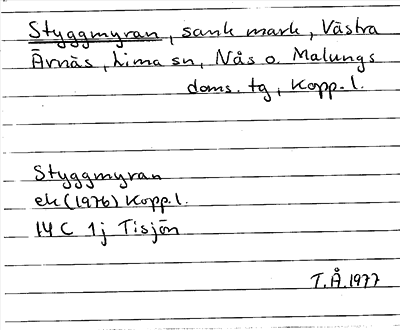 Styggmyran, sank mark, Västra
Ärnäs, Lima sn, Nås o. Malungs
doms. tg, Kopp. l.
Styggmyran
ek (1976) Kopp. l.
14 C 1j Tisjön
T.Å. 1977